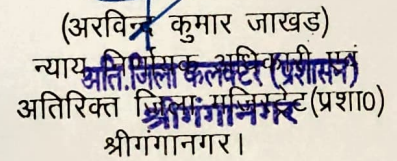 (अरविन्द कुमार जाखड़)
न्याय निर्णायक अधिकारी एवं
अति.जिला कलक्टर (प्रशासन)
अतिरिक्त जिला मजिस्ट्रेट(प्रशा0)
श्रीगंगानगर
श्रीगंगानगर।